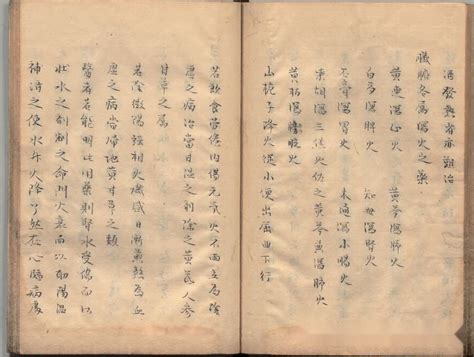 酒發熱者亦難治
臟腑各屬瀉火之藥
黄連瀉心火 黄芩瀉肺火
白芍瀉脾火 知母瀉腎火
石膏瀉胃火 木通瀉小腸火
柴胡瀉三焦火佐之黄芩瀉肺火
黄柏瀉膀胱火
山梔子降火從小便出屈曲下行
若飲食勞倦内傷元氣火不兩立爲陰
虛之病治當甘溫之劑除之黄芪人參
甘草之屬
若陰微陽強相火熾盛日漸煎熬爲血
虛之病當歸地黄甘草之類
醫者若能明此用藥則腎水受傷而以
壯水之制劑之命門火衰而以助陽温
神濟之使水升火降了然在心